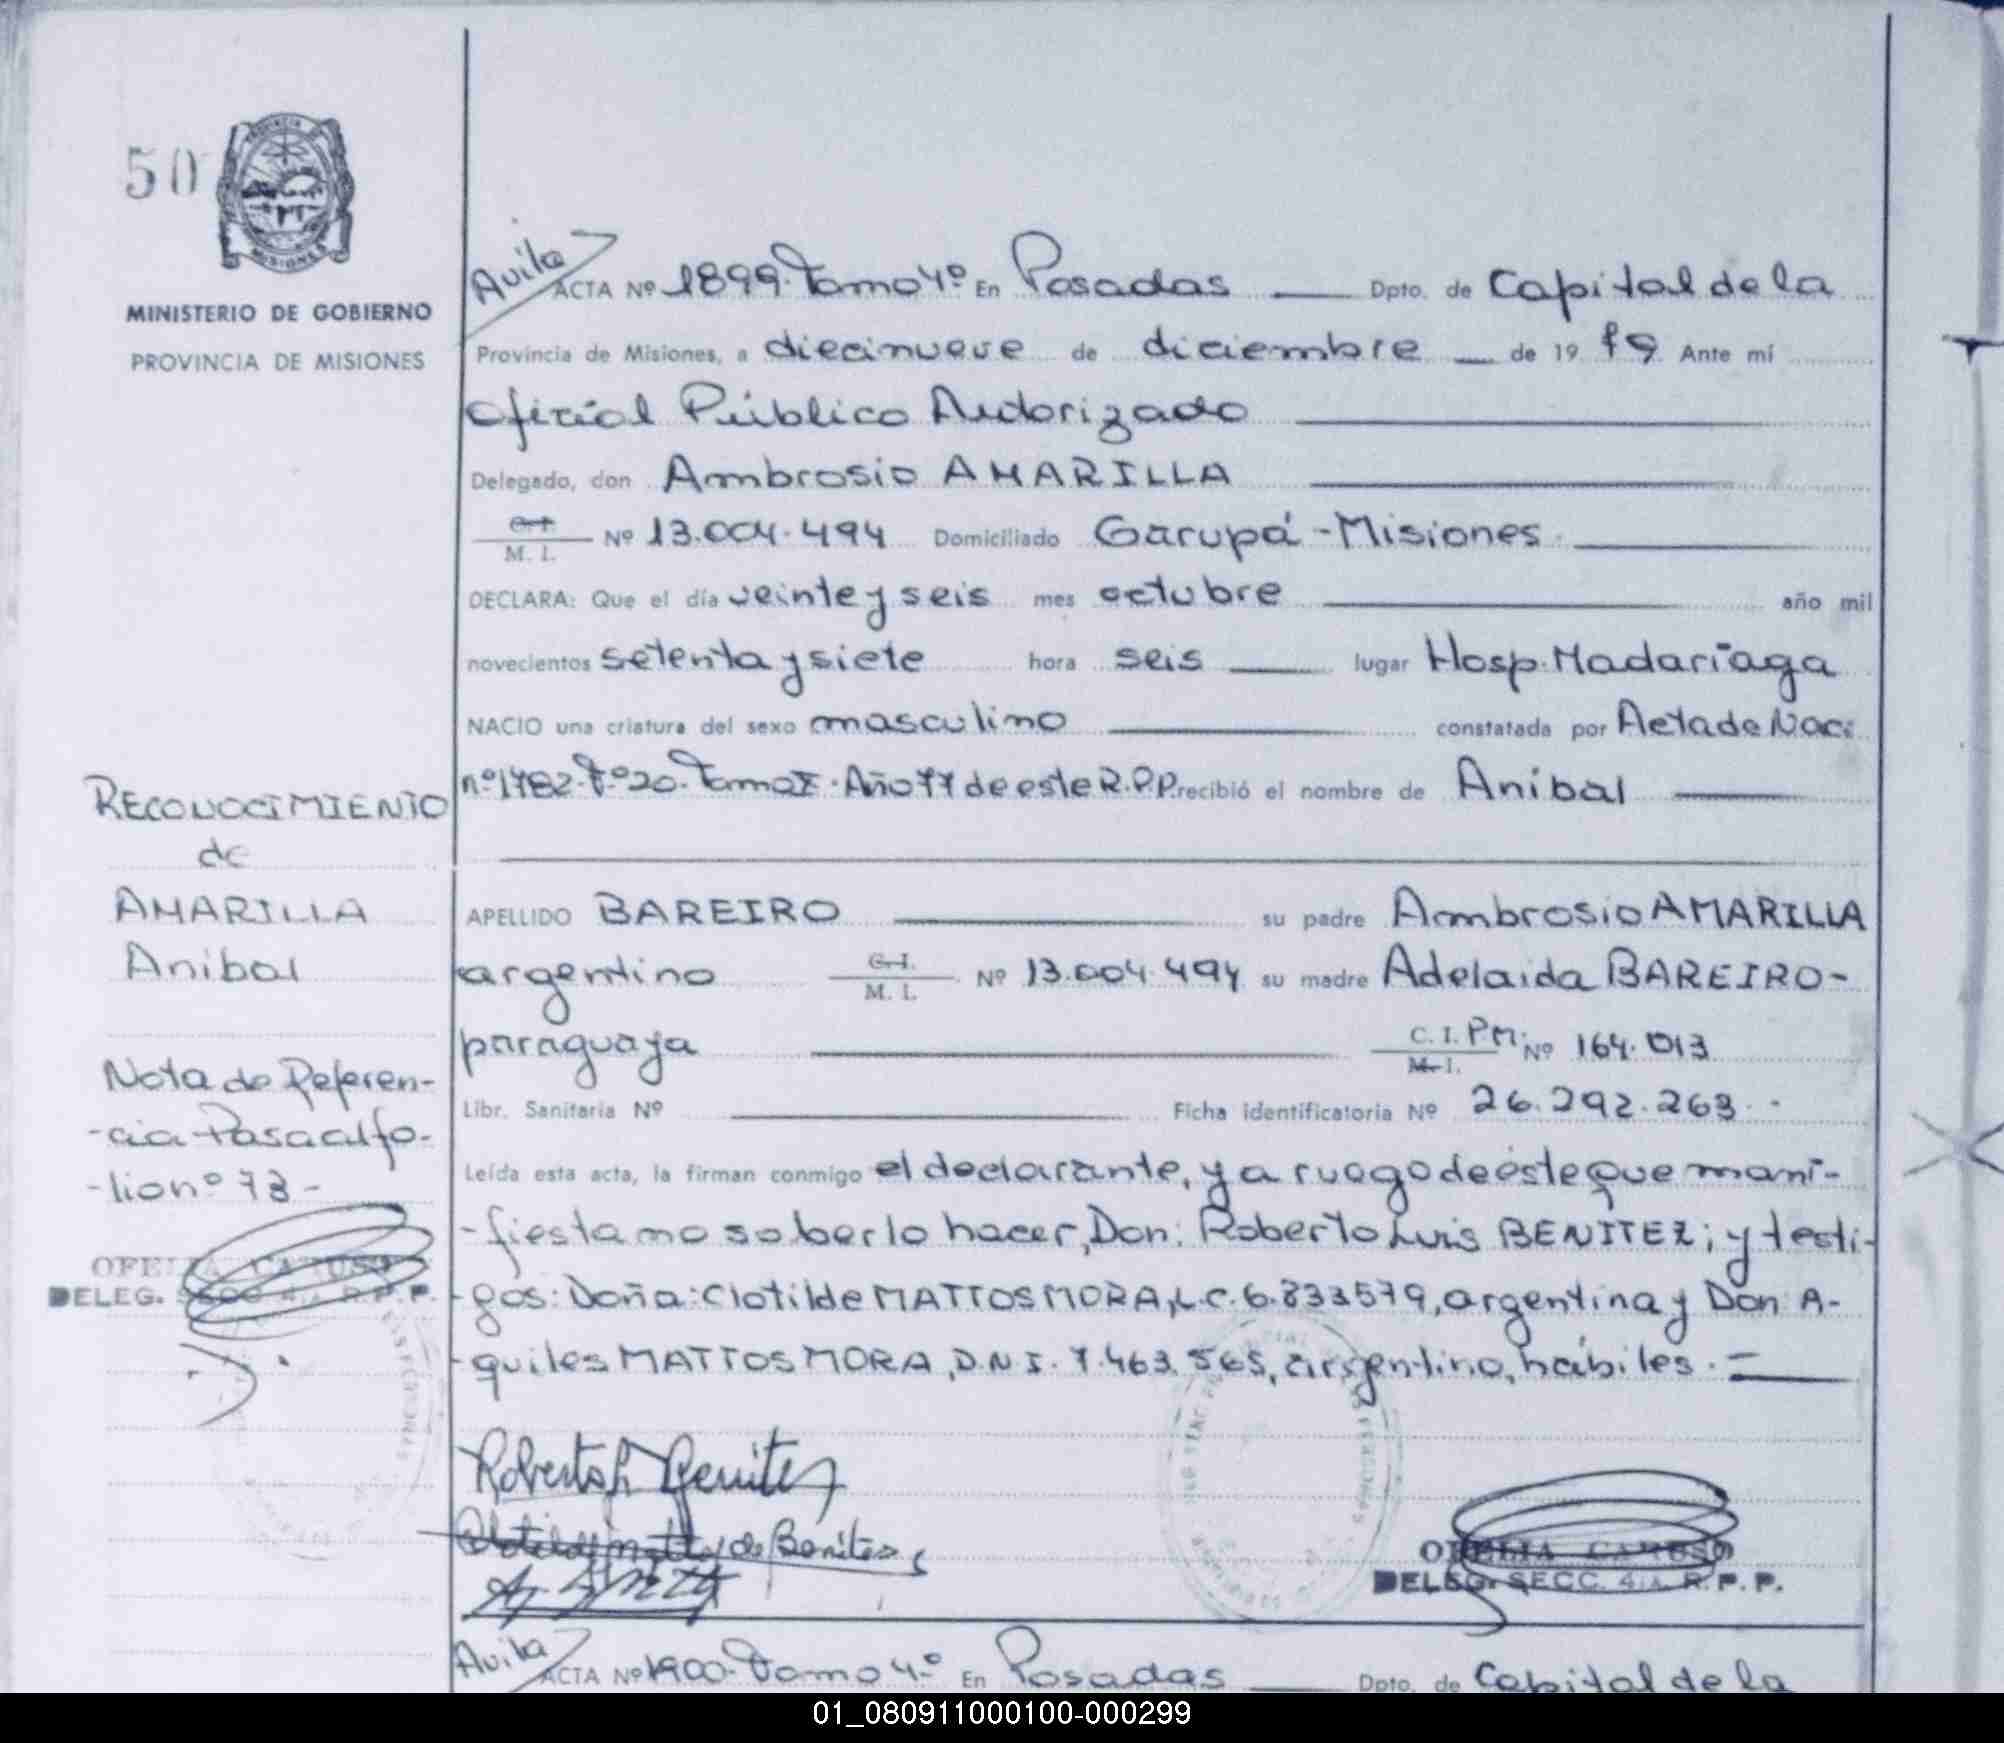 50
MINISTERIO DE GOBIERNO
PROVINCIA DE MISIONES
Avila ACTA Nº 1899. Tomo 4º En Posadas Dpto. de Capital de la
Provincia de Misiones, a diecinueve de diciembre de 19 79 Ante mí
Oficial Público Autorizado
Delegado, don Ambrosio AMARILLA
C.I. M. I. Nº 13.004.494 Domiciliado Garupá - Misiones.
DECLARA: Que el día veinte y seis mes octubre año mil
novecientos setenta y siete hora seis lugar Hosp. Madariaga
NACIO una criatura del sexo masculino constatada por Acta de Nac:
nº 1782. Fº 20. Tomo I. Año 77 de este R.P.P. recibió el nombre de Anibal
APELLIDO BAREIRO su padre Ambrosio AMARILLA
argentino C.I. M. I. Nº 13.004.494 su madre Adelaida BAREIRO-
paraguaya C. I. P.M. M. I. Nº 164.013
Libr. Sanitaria Nº Ficha identificatoria Nº 26.292.263.
Leída esta acta, la firman conmigo el declarante, y a ruego de éste que mani-
-fiesta no saberlo hacer, Don: Roberto Luis BENITEZ; y testi-
gos: Doña: Clotilde MATTOS MORA, L.C. 6.833579, argentina y Don A-
-quiles MATTOS MORA, D.N.I. 7.463.565, argentino, hábiles. =
Roberto L Benitez
de Benitez
OFELIA CARUSO
DELEG. SECC. 4ta R. P. P.
RECONOCIMIENTO
de
AMARILLA
Anibal
Nota de Referen-
-cia Pasa al fo-
-lio nº 73-
OFELIA CARUSO
DELEG. SECC 4ta R. P. P.
Avila ACTA Nº 1900. Tomo 4º En Posadas Dpto. de Capital de la
01_080911000100-000299